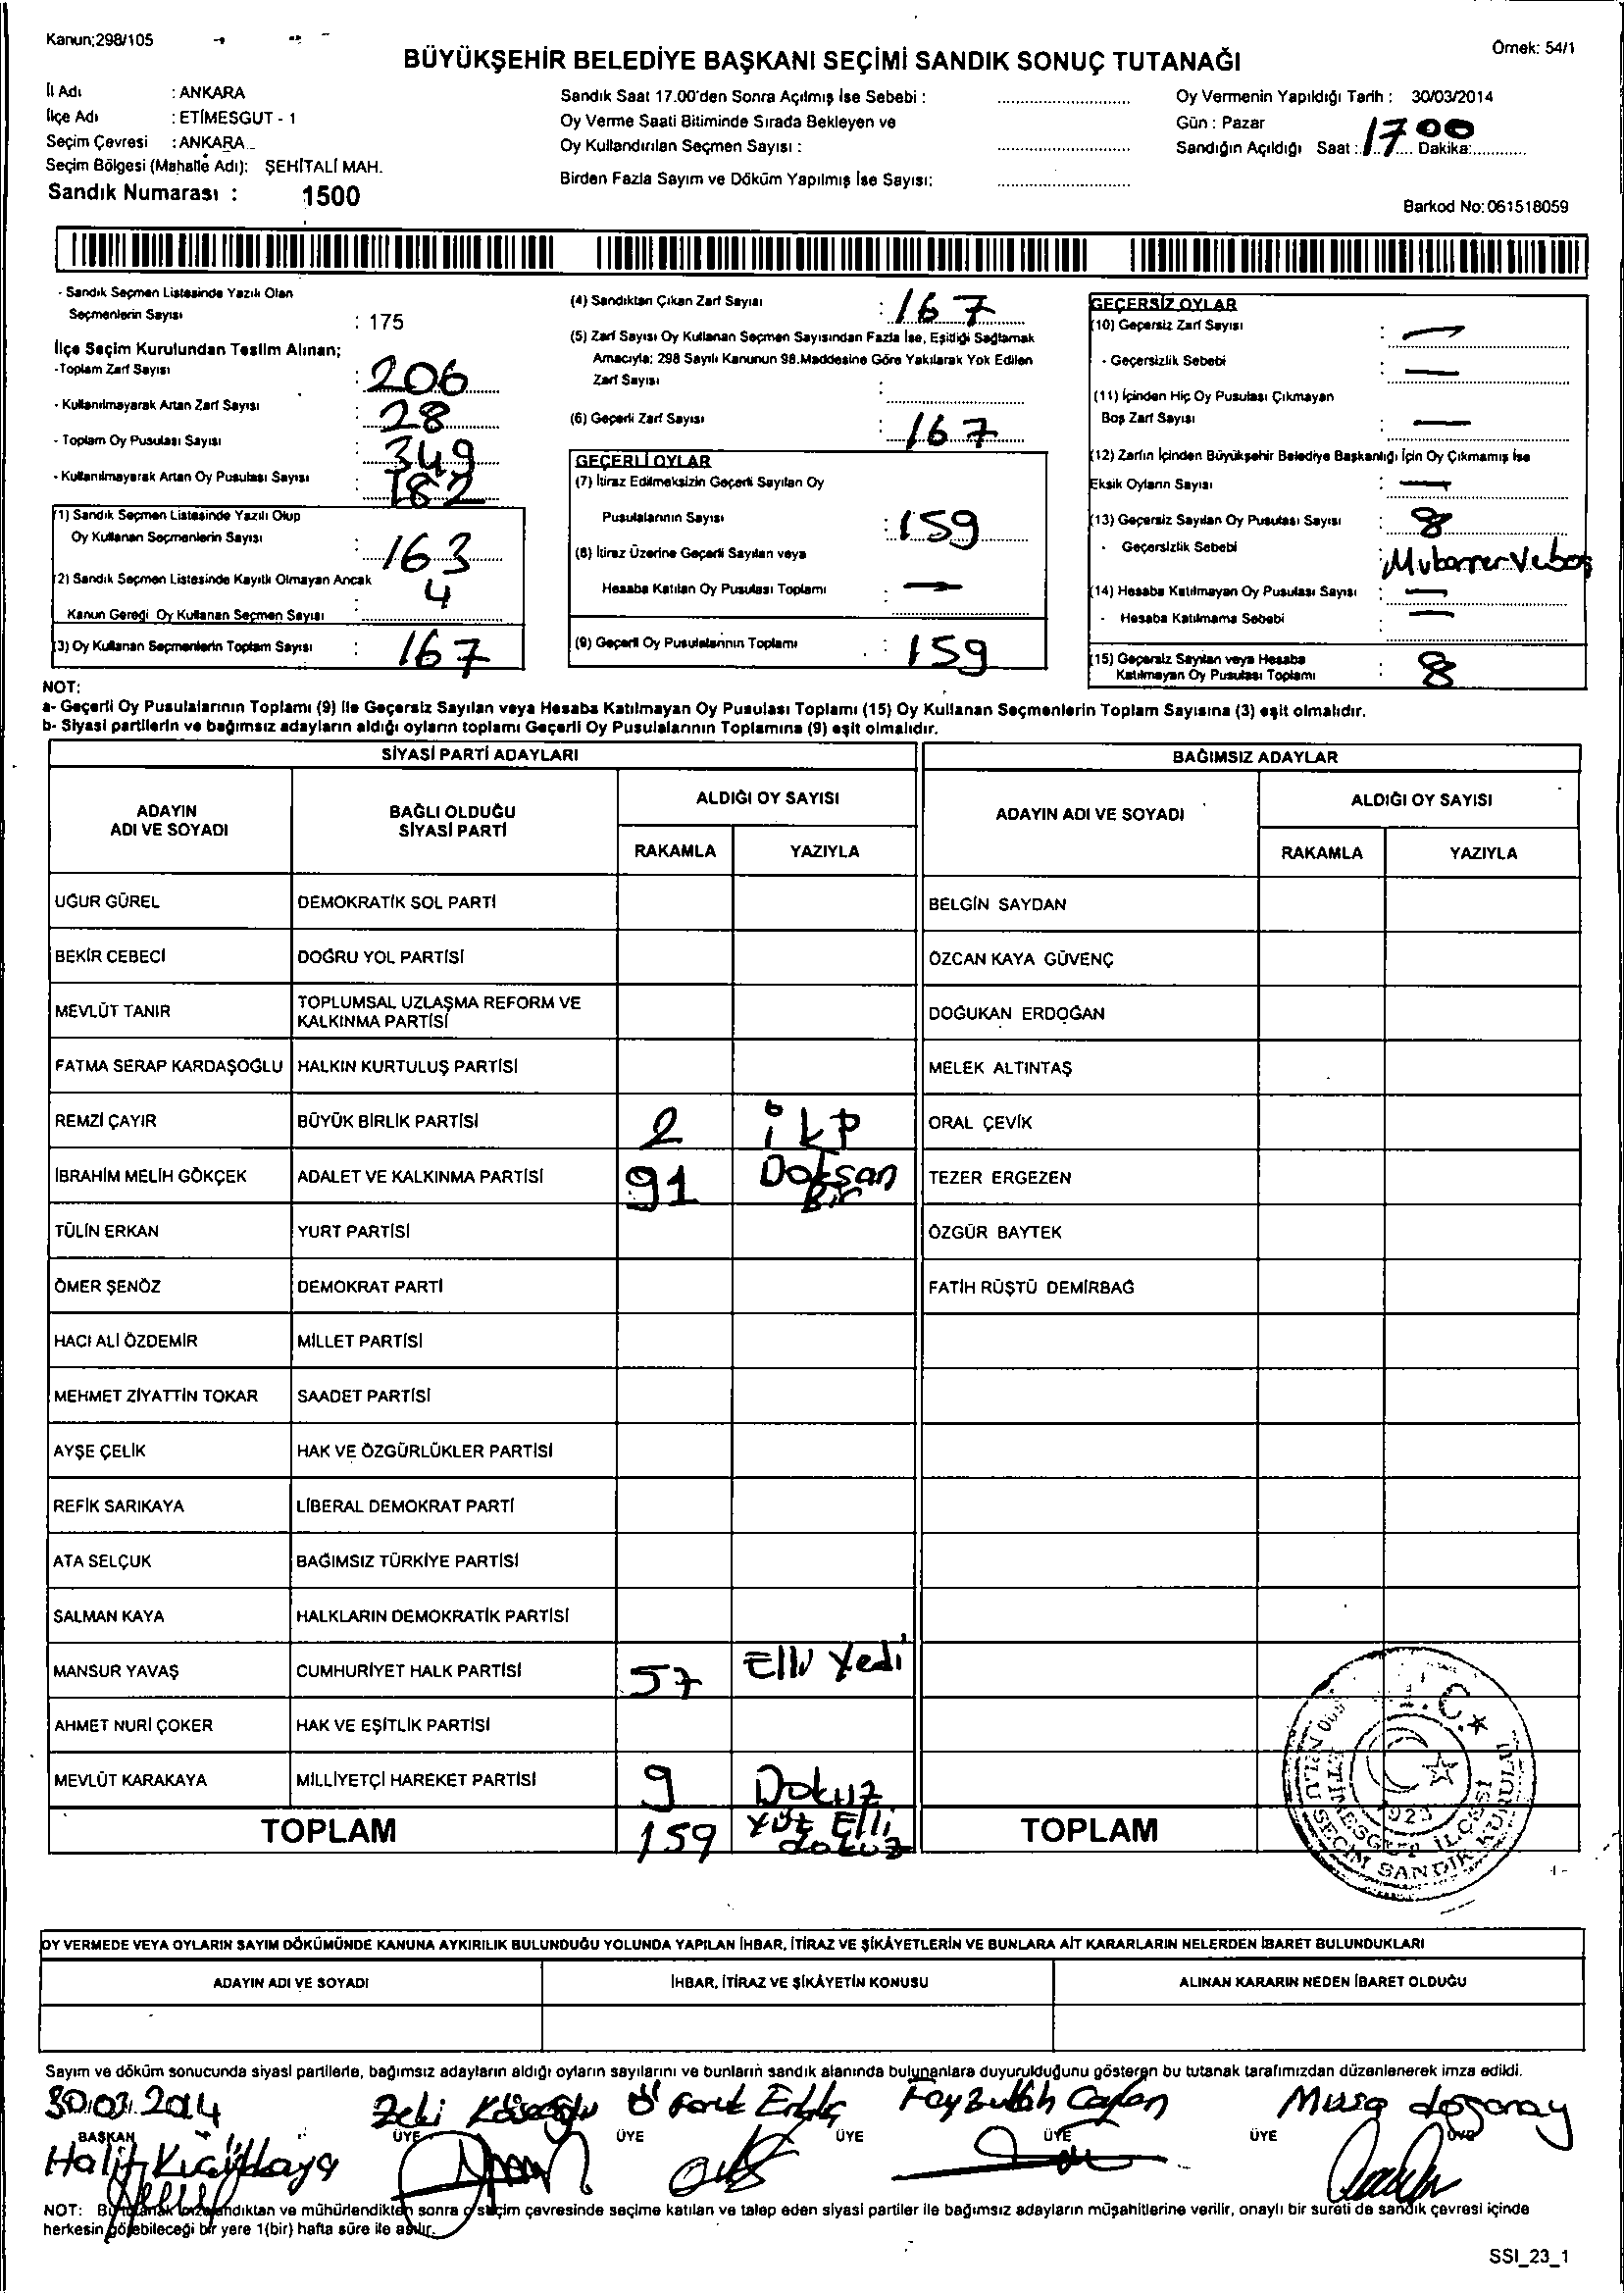 Kanun;298/105
Örnek: 54/1
BÜYÜKŞEHİR BELEDİYE BAŞKANI SEÇİMİ SANDIK SONUÇ TUTANAĞI
İl Adı : ANKARA
İlçe Adı : ETİMESGUT - 1
Seçim Çevresi : ANKARA
Seçim Bölgesi (Mahalle Adı): ŞEHİTALİ MAH.
Sandık Numarası : 1500
Sandık Saat 17.00'den Sonra Açılmış İse Sebebi :
Oy Verme Saati Bitiminde Sırada Bekleyen ve
Oy Kullandırılan Seçmen Sayısı :
Birden Fazla Sayım ve Döküm Yapılmış İse Sayısı:
Oy Vermenin Yapıldığı Tarih : 30/03/2014
Gün : Pazar
Sandığın Açıldığı Saat : 17 Dakika: 00
Barkod No: 061518059
- Sandık Seçmen Listesinde Yazılı Olan
Seçmenlerin Sayısı : 175
İlçe Seçim Kurulundan Teslim Alınan;
- Toplam Zarf Sayısı : 206
- Kullanılmayarak Artan Zarf Sayısı : 28
- Toplam Oy Pusulası Sayısı : 349
- Kullanılmayarak Artan Oy Pusulası Sayısı : 182
(1) Sandık Seçmen Listesinde Yazılı Olup
Oy Kullanan Seçmenlerin Sayısı : 163
(2) Sandık Seçmen Listesinde Kayıtlı Olmayan Ancak
Kanun Gereği Oy Kullanan Seçmen Sayısı : 4
(3) Oy Kullanan Seçmenlerin Toplam Sayısı : 167
(4) Sandıktan Çıkan Zarf Sayısı : 167
(5) Zarf Sayısı Oy Kullanan Seçmen Sayısından Fazla İse, Eşitliği Sağlamak
Amacıyla; 298 Sayılı Kanunun 98.Maddesine Göre Yakılarak Yok Edilen
Zarf Sayısı :
(6) Geçerli Zarf Sayısı : 167
GEÇERLİ OYLAR
(7) İtiraz Edilmeksizin Geçerli Sayılan Oy
Pusulalarının Sayısı : 159
(8) İtiraz Üzerine Geçerli Sayılan veya
Hesaba Katılan Oy Pusulası Toplamı : —
(9) Geçerli Oy Pusulalarının Toplamı : 159
GEÇERSİZ OYLAR
(10) Geçersiz Zarf Sayısı : —
- Geçersizlik Sebebi : —
(11) İçinden Hiç Oy Pusulası Çıkmayan
Boş Zarf Sayısı : —
(12) Zarfın İçinden Büyükşehir Belediye Başkanlığı İçin Oy Çıkmamış İse
Eksik Oyların Sayısı : —
(13) Geçersiz Sayılan Oy Pusulası Sayısı : 8
- Geçersizlik Sebebi :
(14) Hesaba Katılmayan Oy Pusulası Sayısı : —
- Hesaba Katılmama Sebebi : —
(15) Geçersiz Sayılan veya Hesaba
Katılmayan Oy Pusulası Toplamı : 8
NOT:
a- Geçerli Oy Pusulalarının Toplamı (9) ile Geçersiz Sayılan veya Hesaba Katılmayan Oy Pusulası Toplamı (15) Oy Kullanan Seçmenlerin Toplam Sayısına (3) eşit olmalıdır.
b- Siyasi partilerin ve bağımsız adayların aldığı oyların toplamı Geçerli Oy Pusulalarının Toplamına (9) eşit olmalıdır.
SİYASİ PARTİ ADAYLARI
BAĞIMSIZ ADAYLAR
ADAYIN ADI VE SOYADI
BAĞLI OLDUĞU SİYASİ PARTİ
ALDIĞI OY SAYISI
RAKAMLA YAZIYLA
ADAYIN ADI VE SOYADI
ALDIĞI OY SAYISI
RAKAMLA YAZIYLA
UĞUR GÜREL DEMOKRATİK SOL PARTİ BELGİN SAYDAN
BEKİR CEBECİ DOĞRU YOL PARTİSİ ÖZCAN KAYA GÜVENÇ
MEVLÜT TANIR TOPLUMSAL UZLAŞMA REFORM VE KALKINMA PARTİSİ DOĞUKAN ERDOĞAN
FATMA SERAP KARDAŞOĞLU HALKIN KURTULUŞ PARTİSİ MELEK ALTINTAŞ
REMZİ ÇAYIR BÜYÜK BİRLİK PARTİSİ 2 ORAL ÇEVİK
İBRAHİM MELİH GÖKÇEK ADALET VE KALKINMA PARTİSİ 91 Doksan Bir TEZER ERGEZEN
TÜLİN ERKAN YURT PARTİSİ ÖZGÜR BAYTEK
ÖMER ŞENÖZ DEMOKRAT PARTİ FATİH RÜŞTÜ DEMİRBAĞ
HACI ALİ ÖZDEMİR MİLLET PARTİSİ
MEHMET ZİYATTİN TOKAR SAADET PARTİSİ
AYŞE ÇELİK HAK VE ÖZGÜRLÜKLER PARTİSİ
REFİK SARIKAYA LİBERAL DEMOKRAT PARTİ
ATA SELÇUK BAĞIMSIZ TÜRKİYE PARTİSİ
SALMAN KAYA HALKLARIN DEMOKRATİK PARTİSİ
MANSUR YAVAŞ CUMHURİYET HALK PARTİSİ 57 Elli Yedi
AHMET NURİ ÇOKER HAK VE EŞİTLİK PARTİSİ
MEVLÜT KARAKAYA MİLLİYETÇİ HAREKET PARTİSİ 9 Dokuz
TOPLAM 159 Yüz Elli dokuz TOPLAM
T.C.
1923
ETİMESGUT İLÇESİ
SEÇİM SANDIK KURULU
OY VERMEDE VEYA OYLARIN SAYIM DÖKÜMÜNDE KANUNA AYKIRILIK BULUNDUĞU YOLUNDA YAPILAN İHBAR, İTİRAZ VE ŞİKÂYETLERİN VE BUNLARA AİT KARARLARIN NELERDEN İBARET BULUNDUKLARI
ADAYIN ADI VE SOYADI İHBAR, İTİRAZ VE ŞİKÂYETİN KONUSU ALINAN KARARIN NEDEN İBARET OLDUĞU
Sayım ve döküm sonucunda siyasi partilerle, bağımsız adayların aldığı oyların sayılarını ve bunların sandık alanında bulunanlara duyurulduğunu gösteren bu tutanak tarafımızdan düzenlenerek imza edildi.
30.03.2014 Zeki Feyzullah Musa doğanay
BAŞKAN ÜYE ÜYE ÜYE ÜYE ÜYE ÜYE
Halit
NOT: Bu tutanak imzalandıktan ve mühürlendikten sonra o seçim çevresinde seçime katılan ve talep eden siyasi partiler ile bağımsız adayların müşahitlerine verilir, onaylı bir sureti de sandık çevresi içinde
herkesin görebileceği bir yere 1(bir) hafta süre ile asılır.
SSI_23_1